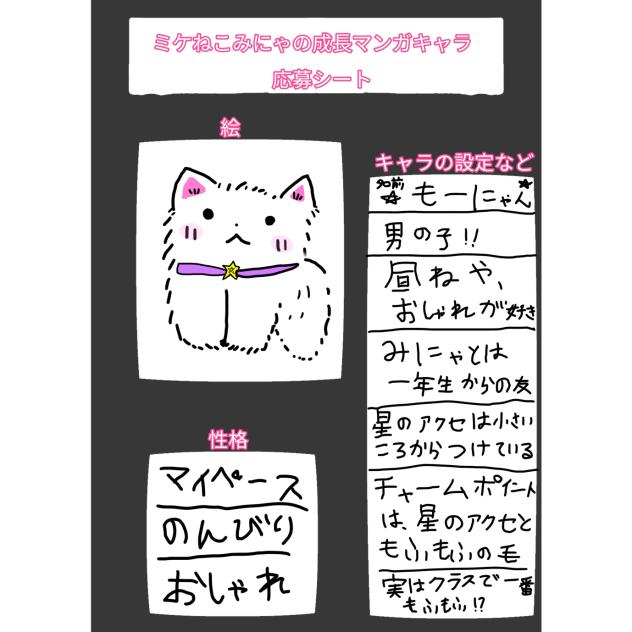 ミケねこみにゃの成長マンガキャラ
応募シート
絵
キャラの設定など
名前
もーにゃん
男の子!!
昼ねや、
おしゃれが好き
みにゃとは
一年生からの友
星のアクセは小さい
ころからつけている
チャームポイント
は、星のアクセと
もふもふの毛
実はクラスで一番
もふもふ!?
性格
マイペース
のんびり
おしゃれ